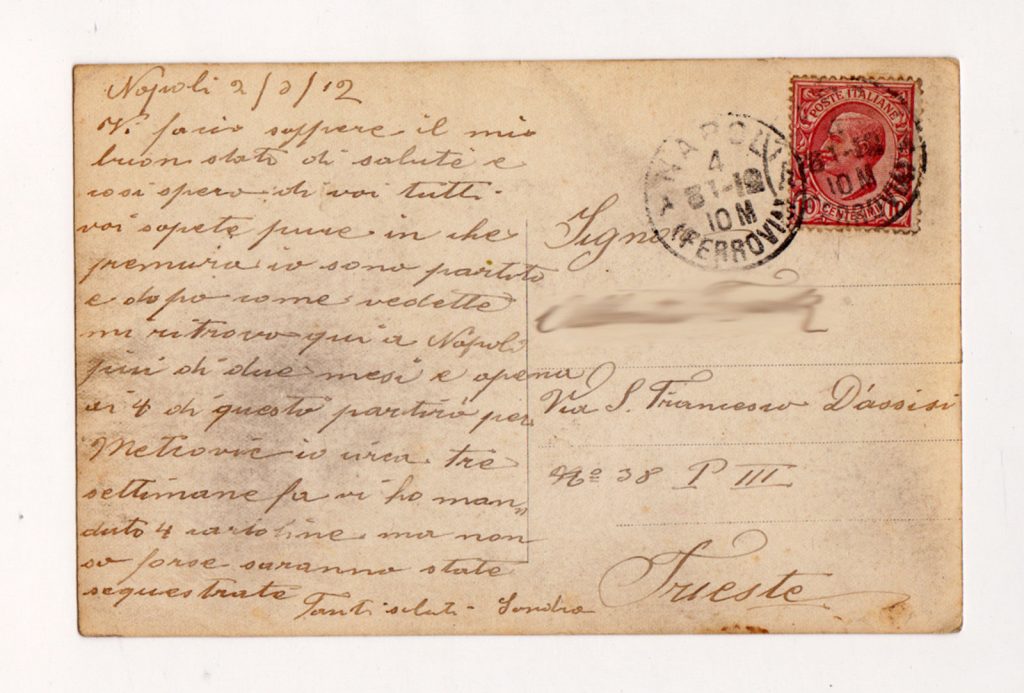 Napoli 2/3/12
Vi facio sappere il mio
buon stato di salute e
cosi spero di voi tutti.
voi sapete pure in che
premura io sono partito
e dopo come vedette
mi ritrovo qui a Napoli
piu di due mesi e apena
ai 4 di questo partirò per
Metrovic io circa tre
settimane fa vi ho man„
dato 4 cartoline ma non
so forse saranno state
sequestrate
Tanti saluti Sandro
POSTE ITALIANE
CENTESIMI
NAPOLI
4
10 M
(FERROVIA)
10 M
Via S. Francesco D'assisi
No 38 P III
Trieste